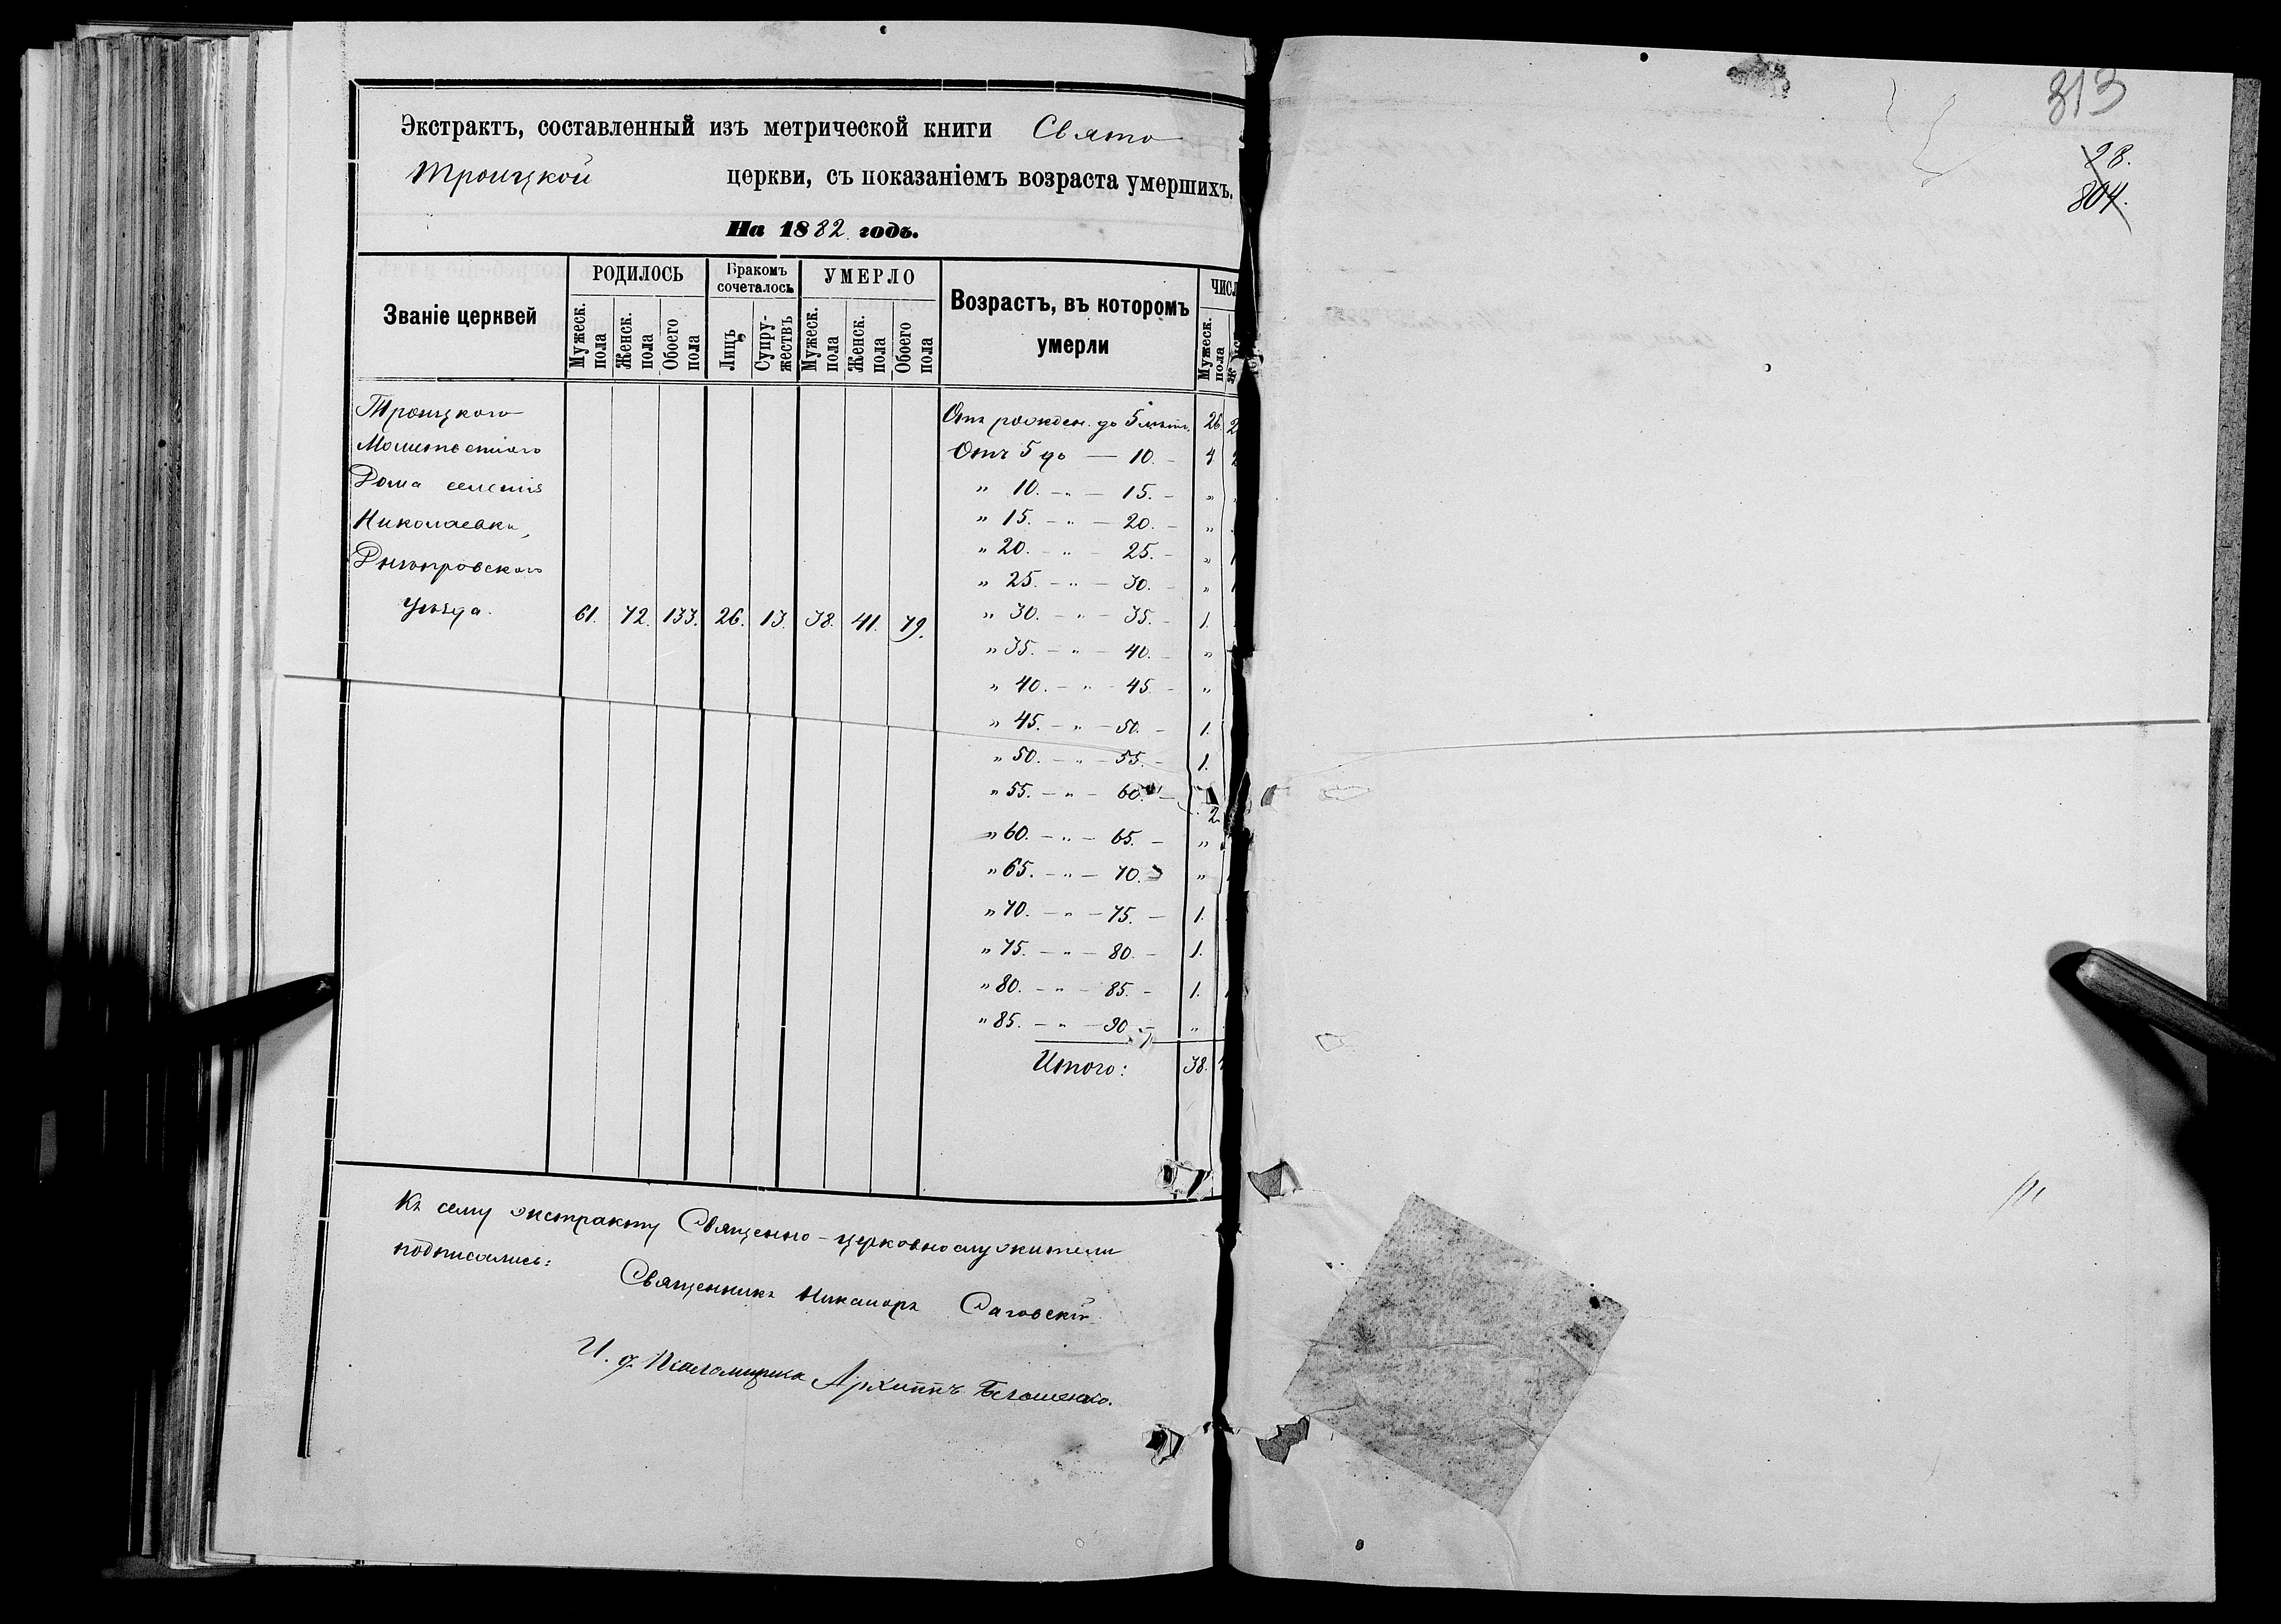 Экстрактъ, составленный изъ метрической книги Свято
Троицкой церкви, съ показаніемъ возраста умершихъ.
На 1882 годъ.
Званіе церквей
РОДИЛОСЬ
Мужеск. пола
Женск. пола
Обоего пола
Бракомъ сочеталось
Лицъ
Супружествъ
УМЕРЛО
Мужеск. пола
Женск. пола
Обоего пола
Возрастъ, въ которомъ умерли
Мужеск. пола
Троицкаго
Молитвеннаго
Дома селенія
Николаевки,
Днѣпровскаго
уѣзда. 61. 72. 133. 26. 13. 38. 41. 79.
Отъ рожден. до 5 лѣтъ. 26.
Отъ 5 до — 10. — 4
„ 10. — „ — 15. — „
„ 15. — „ — 20. — „
„ 20. — „ — 25. — „
„ 25. — „ — 30. — „
„ 30. — „ — 35. — 1.
„ 35. — „ — 40. — „
„ 40. — „ — 45. — „
„ 45. — „ — 50. — 1.
„ 50. — „ — 55. — 1.
„ 55. — „ — 60. — 2.
„ 60. — „ — 65. — „
„ 65. — „ — 70. — „
„ 70. — „ — 75. — 1.
„ 75. — „ — 80. — 1.
„ 80. — „ — 85. — 1.
„ 85. — „ — 90. — „
Итого: 38.
Къ сему экстракту Священно-церковнослужители
подписались:
Священникъ Никаноръ Саговскій
И. д. Псаломщика Архиппъ
313
28.
804.